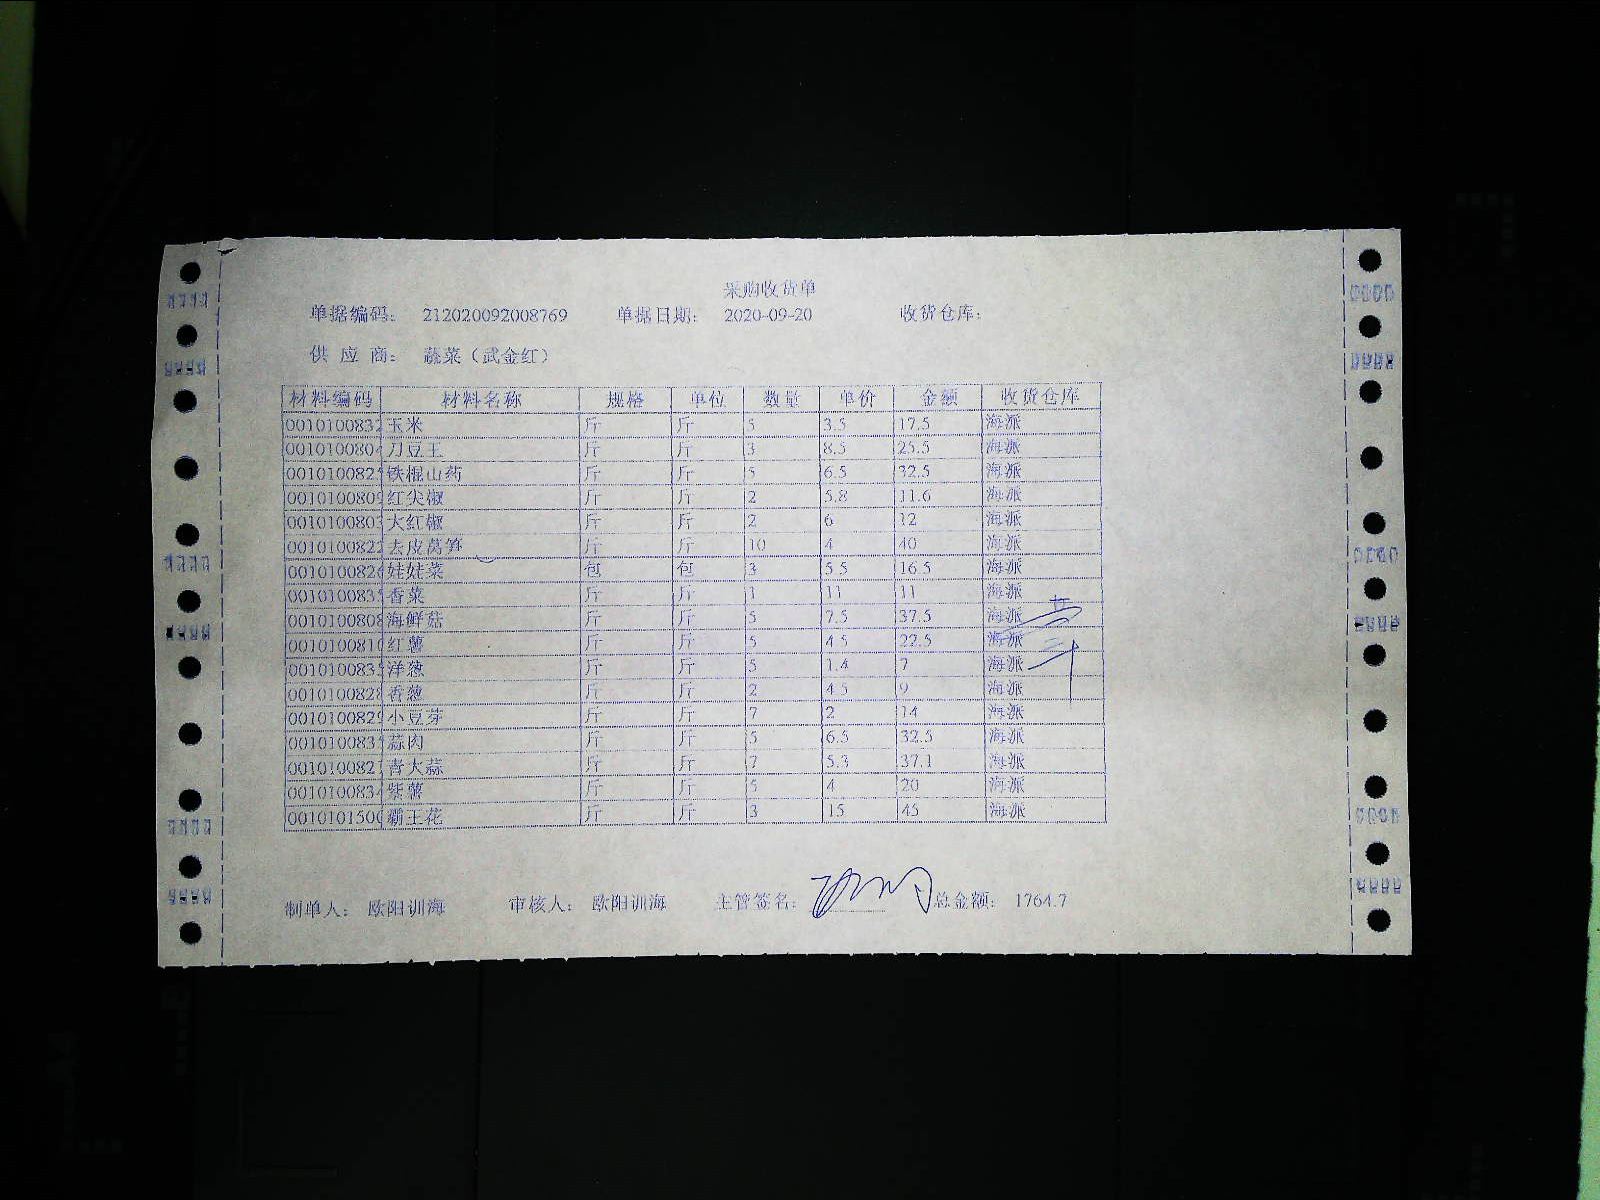 采购收货单
单据编码： 212020092008769 单据日期： 2020-09-20 收货仓库：
供 应 商： 蔬菜（武金红）
材料编码 材料名称 规格 单位 数量 单价 金额 收货仓库
0010100832 玉米 斤 斤 5 3.5 17.5 海派
001010080 刀豆王 斤 斤 3 8.5 25.5 海派
001010082 铁棍山药 斤 斤 5 6.5 32.5 海派
001010080 红尖椒 斤 斤 2 5.8 11.6 海派
001010080 大红椒 斤 斤 2 6 12 海派
001010082 去皮莴笋 斤 斤 10 4 40 海派
001010082 娃娃菜 包 包 3 5.5 16.5 海派
001010083 香菜 斤 斤 1 11 11 海派
0010100808 海鲜菇 斤 斤 5 7.5 37.5 海派
001010081 红薯 斤 斤 5 4.5 22.5 海派
001010083 洋葱 斤 斤 5 1.4 7 海派
001010082 香葱 斤 斤 2 4.5 9 海派
001010082 小豆芽 斤 斤 7 2 14 海派
001010083 蒜肉 斤 斤 5 6.5 32.5 海派
001010082 青大蒜 斤 斤 7 5.3 37.1 海派
001010083 紫薯 斤 斤 5 4 20 海派
001010150 霸王花 斤 斤 3 15 45 海派
制单人： 欧阳训海 审核人： 欧阳训海 主管签名： 总金额： 1764.7